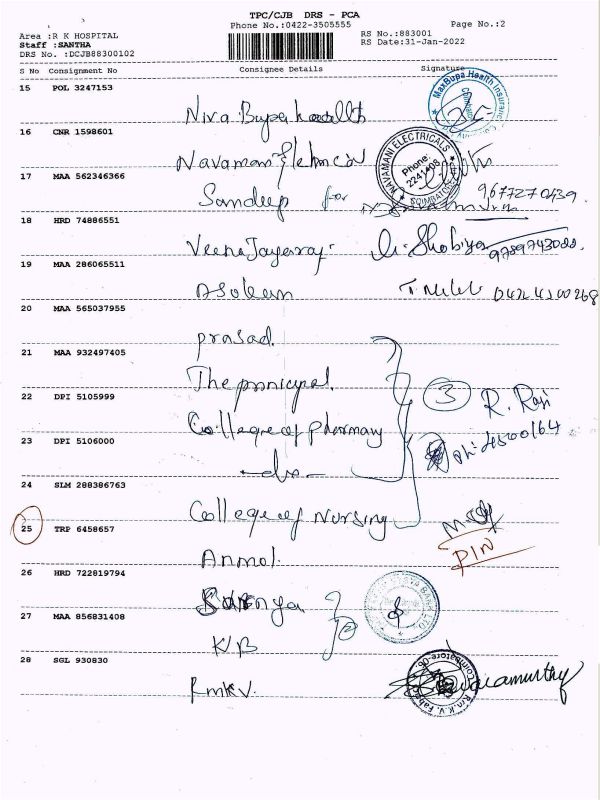 TPC/CJB DRS - PCA
Phone No.:0422-3505555 Page No.:2
Area :R K HOSPITAL RS No.:883001
Staff :SANTHA RS Date:31-Jan-2022
DRS No. :DCJB88300102
S No Consignment No Consignee Details Signature
15 POL 3247153
MaxBupa Health Insurance
16 CNR 1598601
NAVAMANI ELECTRICALS
Phone:
COIMBATORE
17 MAA 562346366
Sandeep for
9677270439
18 HRD 74886551
Veena Jayaraj
9789743088
19 MAA 286065511
Asokan
0422 4500268
20 MAA 565037955
prasad
21 MAA 932497405
The principal
22 DPI 5105999
3 R. Raji
College of Pharmacy
ph: 4500164
23 DPI 5106000
-do-
24 SLM 288386763
College of Nursing
25 TRP 6458657
PIN
Anmol
26 HRD 722819794
27 MAA 856831408
KVB
28 SGL 930830
Rmkv.